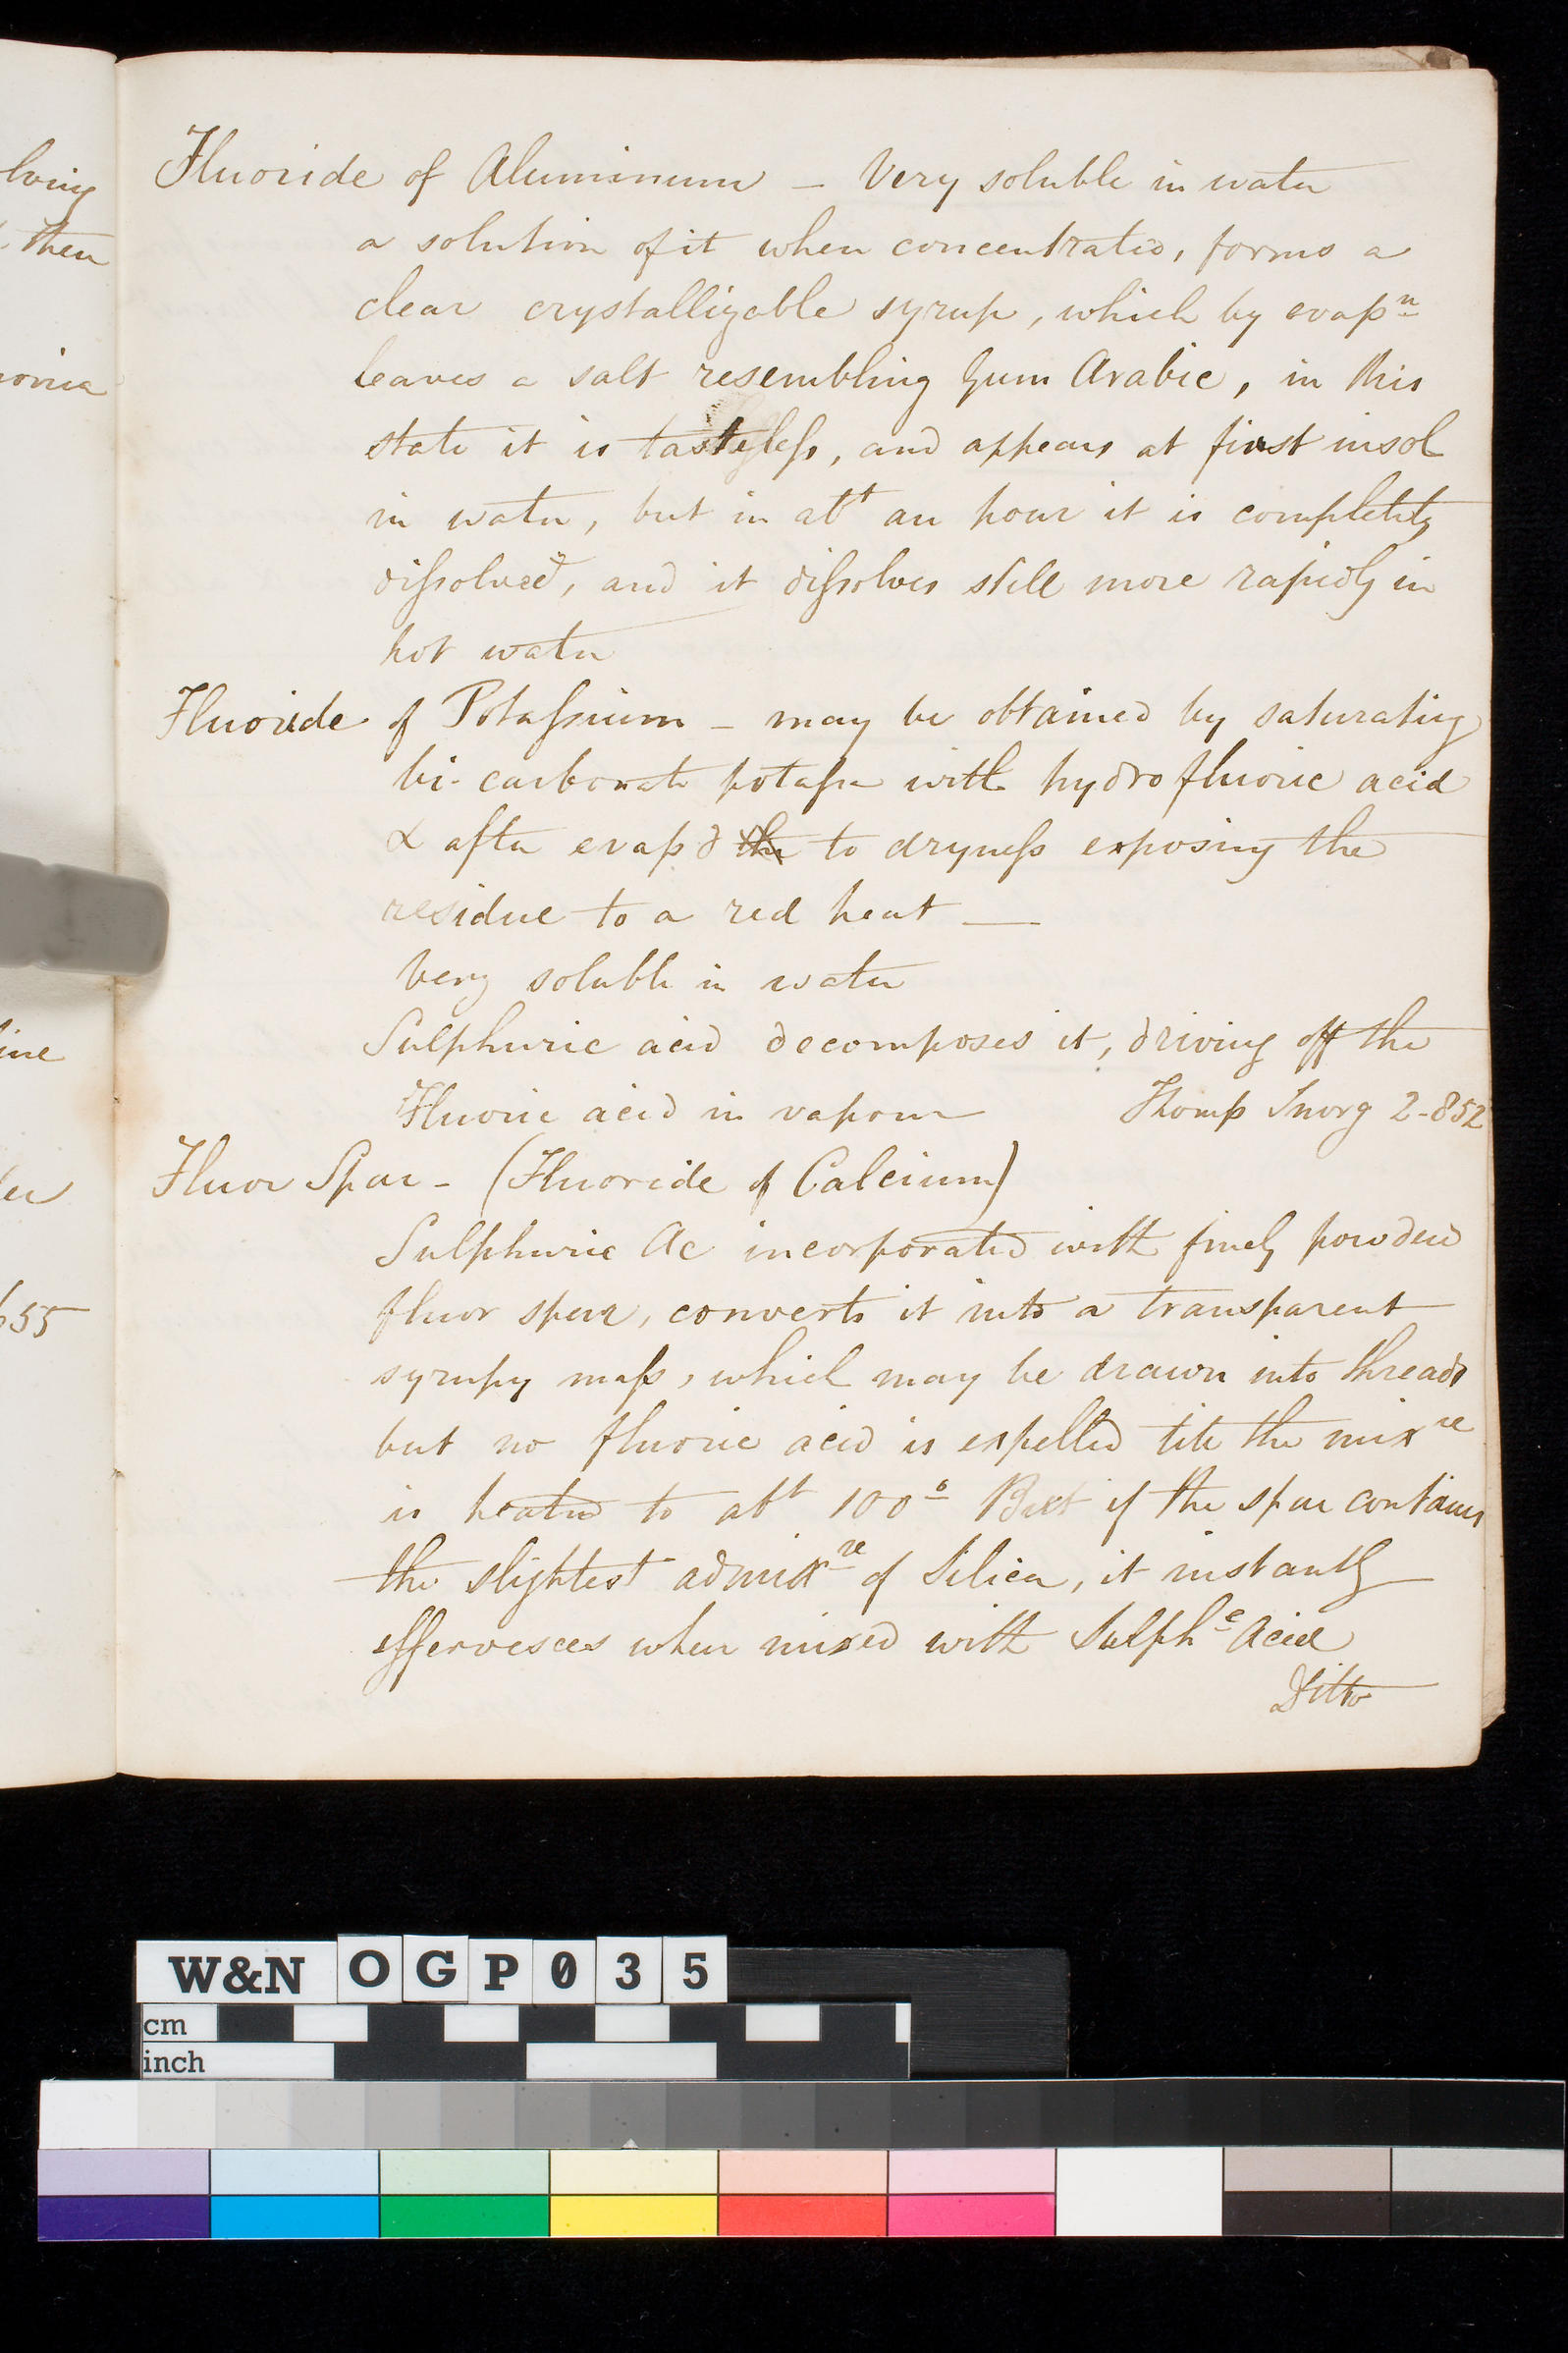 lving
then
onia
ine
er
655
Fluoride of Aluminum – Very soluble in water
a solution of it when concentrated, forms a
clear crystallizable syrup, which by evapn
leaves a salt resembling Gum Arabic, in this
state it is tasteless, and appears at first insol
in water, but in abt an hour it is completely
dissolved, and it dissolves still more rapidly in
hot water
Fluoride of Potassium – may be obtained by saturating
bi-carbonate potassa with hydrofluoric acid
& after evapd the to dryness exposing the
residue to a red heat —
Very soluble in water
Sulphuric acid decomposes it, driving off the
Fluoric acid in vapour Thomp Inorg 2-852
Fluor Spar – (Fluoride of Calcium)
Sulphuric Ac incorporated with finely powdered
fluor spar, converts it into a transparent
syrupy mass, which may be drawn into threads
but no fluoric acid is expelled till the mixre
is heated to abt 100° But if the spar contains
the slightest admixre of Silica, it instantly
effervesces when mixed with Sulphc Acid
Ditto
W&N OGP035
cm
inch